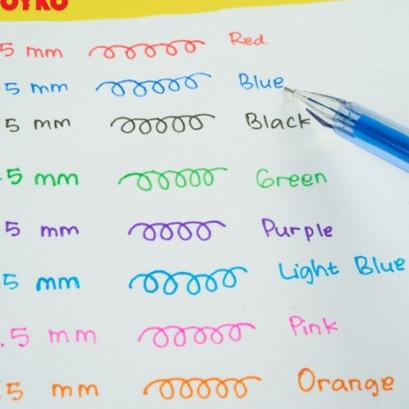 OYKO
5 mm Red
5 mm Blue
5 mm Black
5 mm Green
5 mm Purple
5 mm Light Blue
.5 mm Pink
5 mm Orange